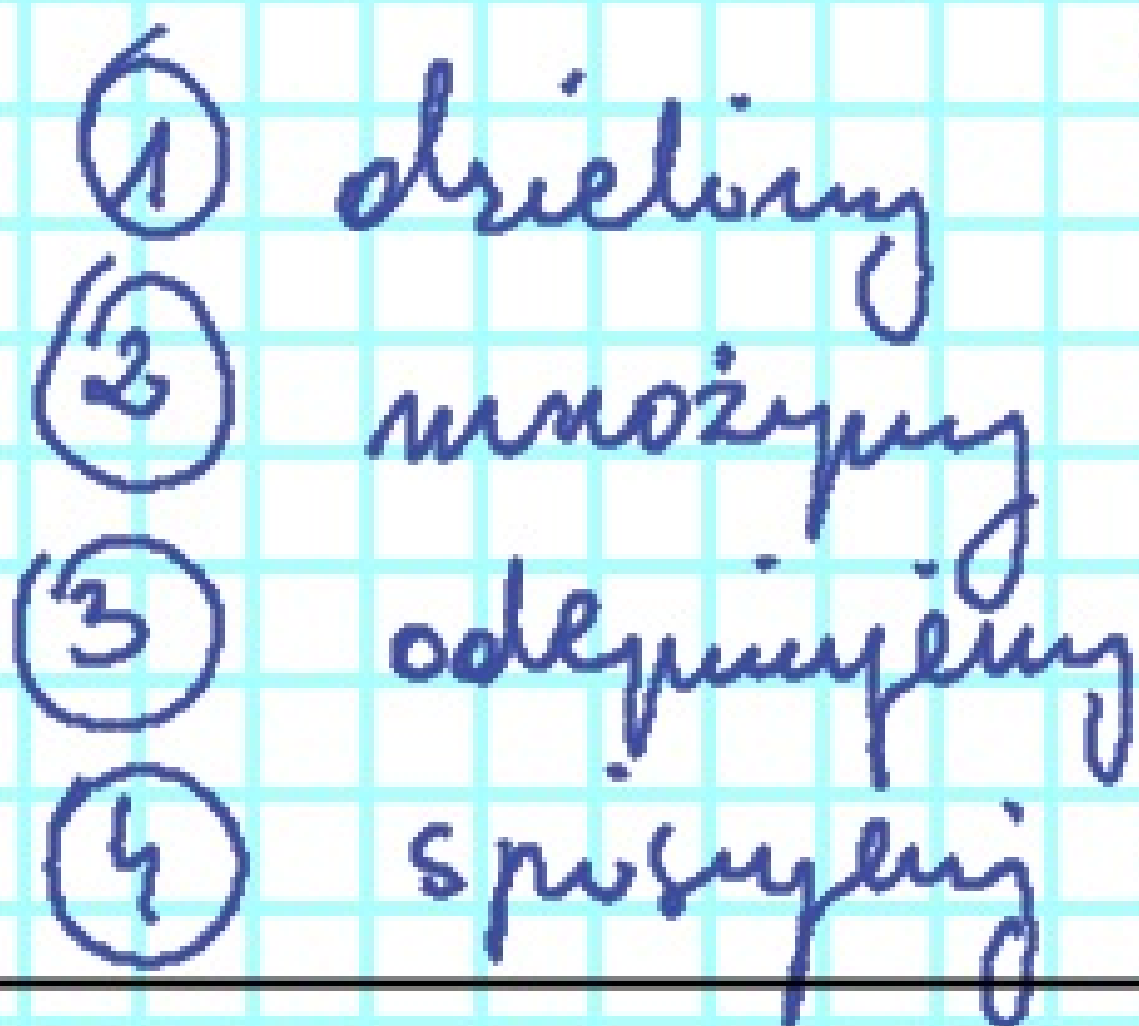 ① dzielimy
② mnożymy
③ odejmujemy
④ spisujemy